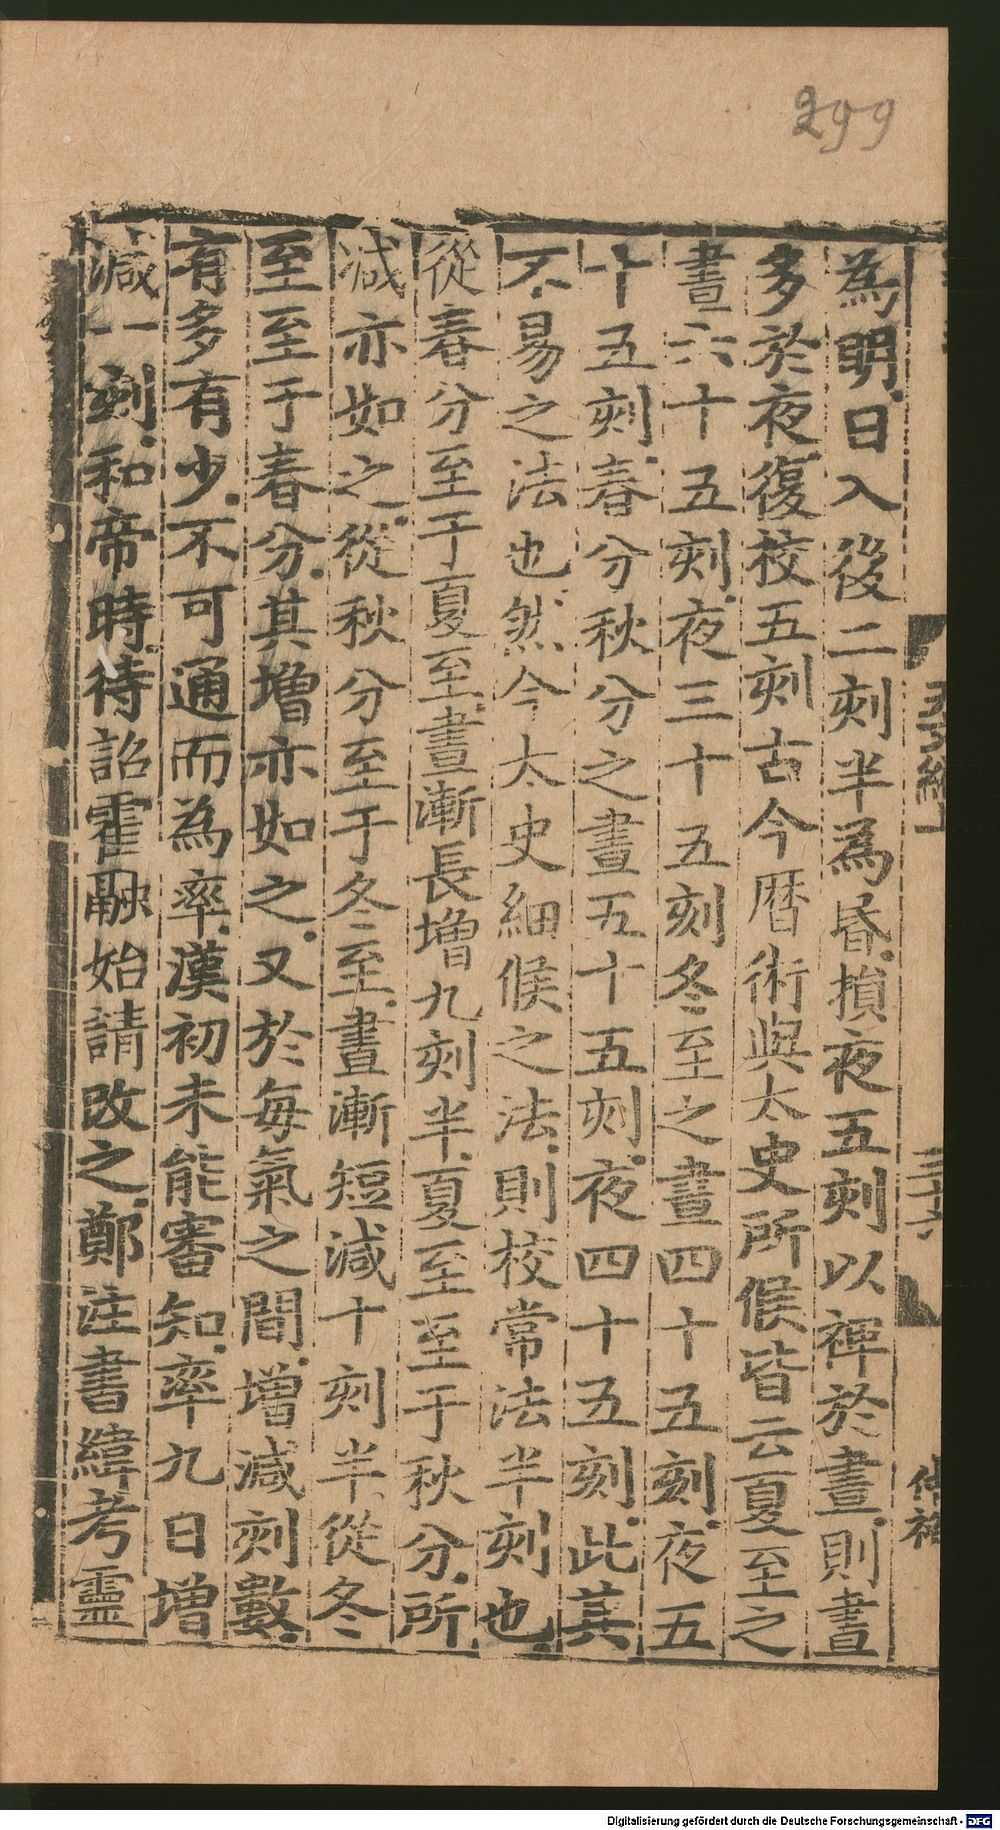 299
為明日入後二刻半為昏損夜五刻以裨於晝則晝
多於夜復校五刻古今曆術與太史所候皆云夏至之
晝六十五刻夜三十五刻冬至之晝四十五刻夜五
十五刻春分秋分之晝五十五刻夜四十五刻此其
不易之法也然今太史細候之法則校常法半刻也
從春分至于夏至晝漸長增九刻半夏至至于秋分所
減亦如之從秋分至于冬至晝漸短減十刻半從冬
至至于春分其增亦如之又於每氣之間增減刻數
有多有少不可通而為率漢初未能審知率九日增
減一刻和帝時待詔霍融始請改之鄭注書緯考靈
Digitalisierung gefördert durch die Deutsche Forschungsgemeinschaft - DFG